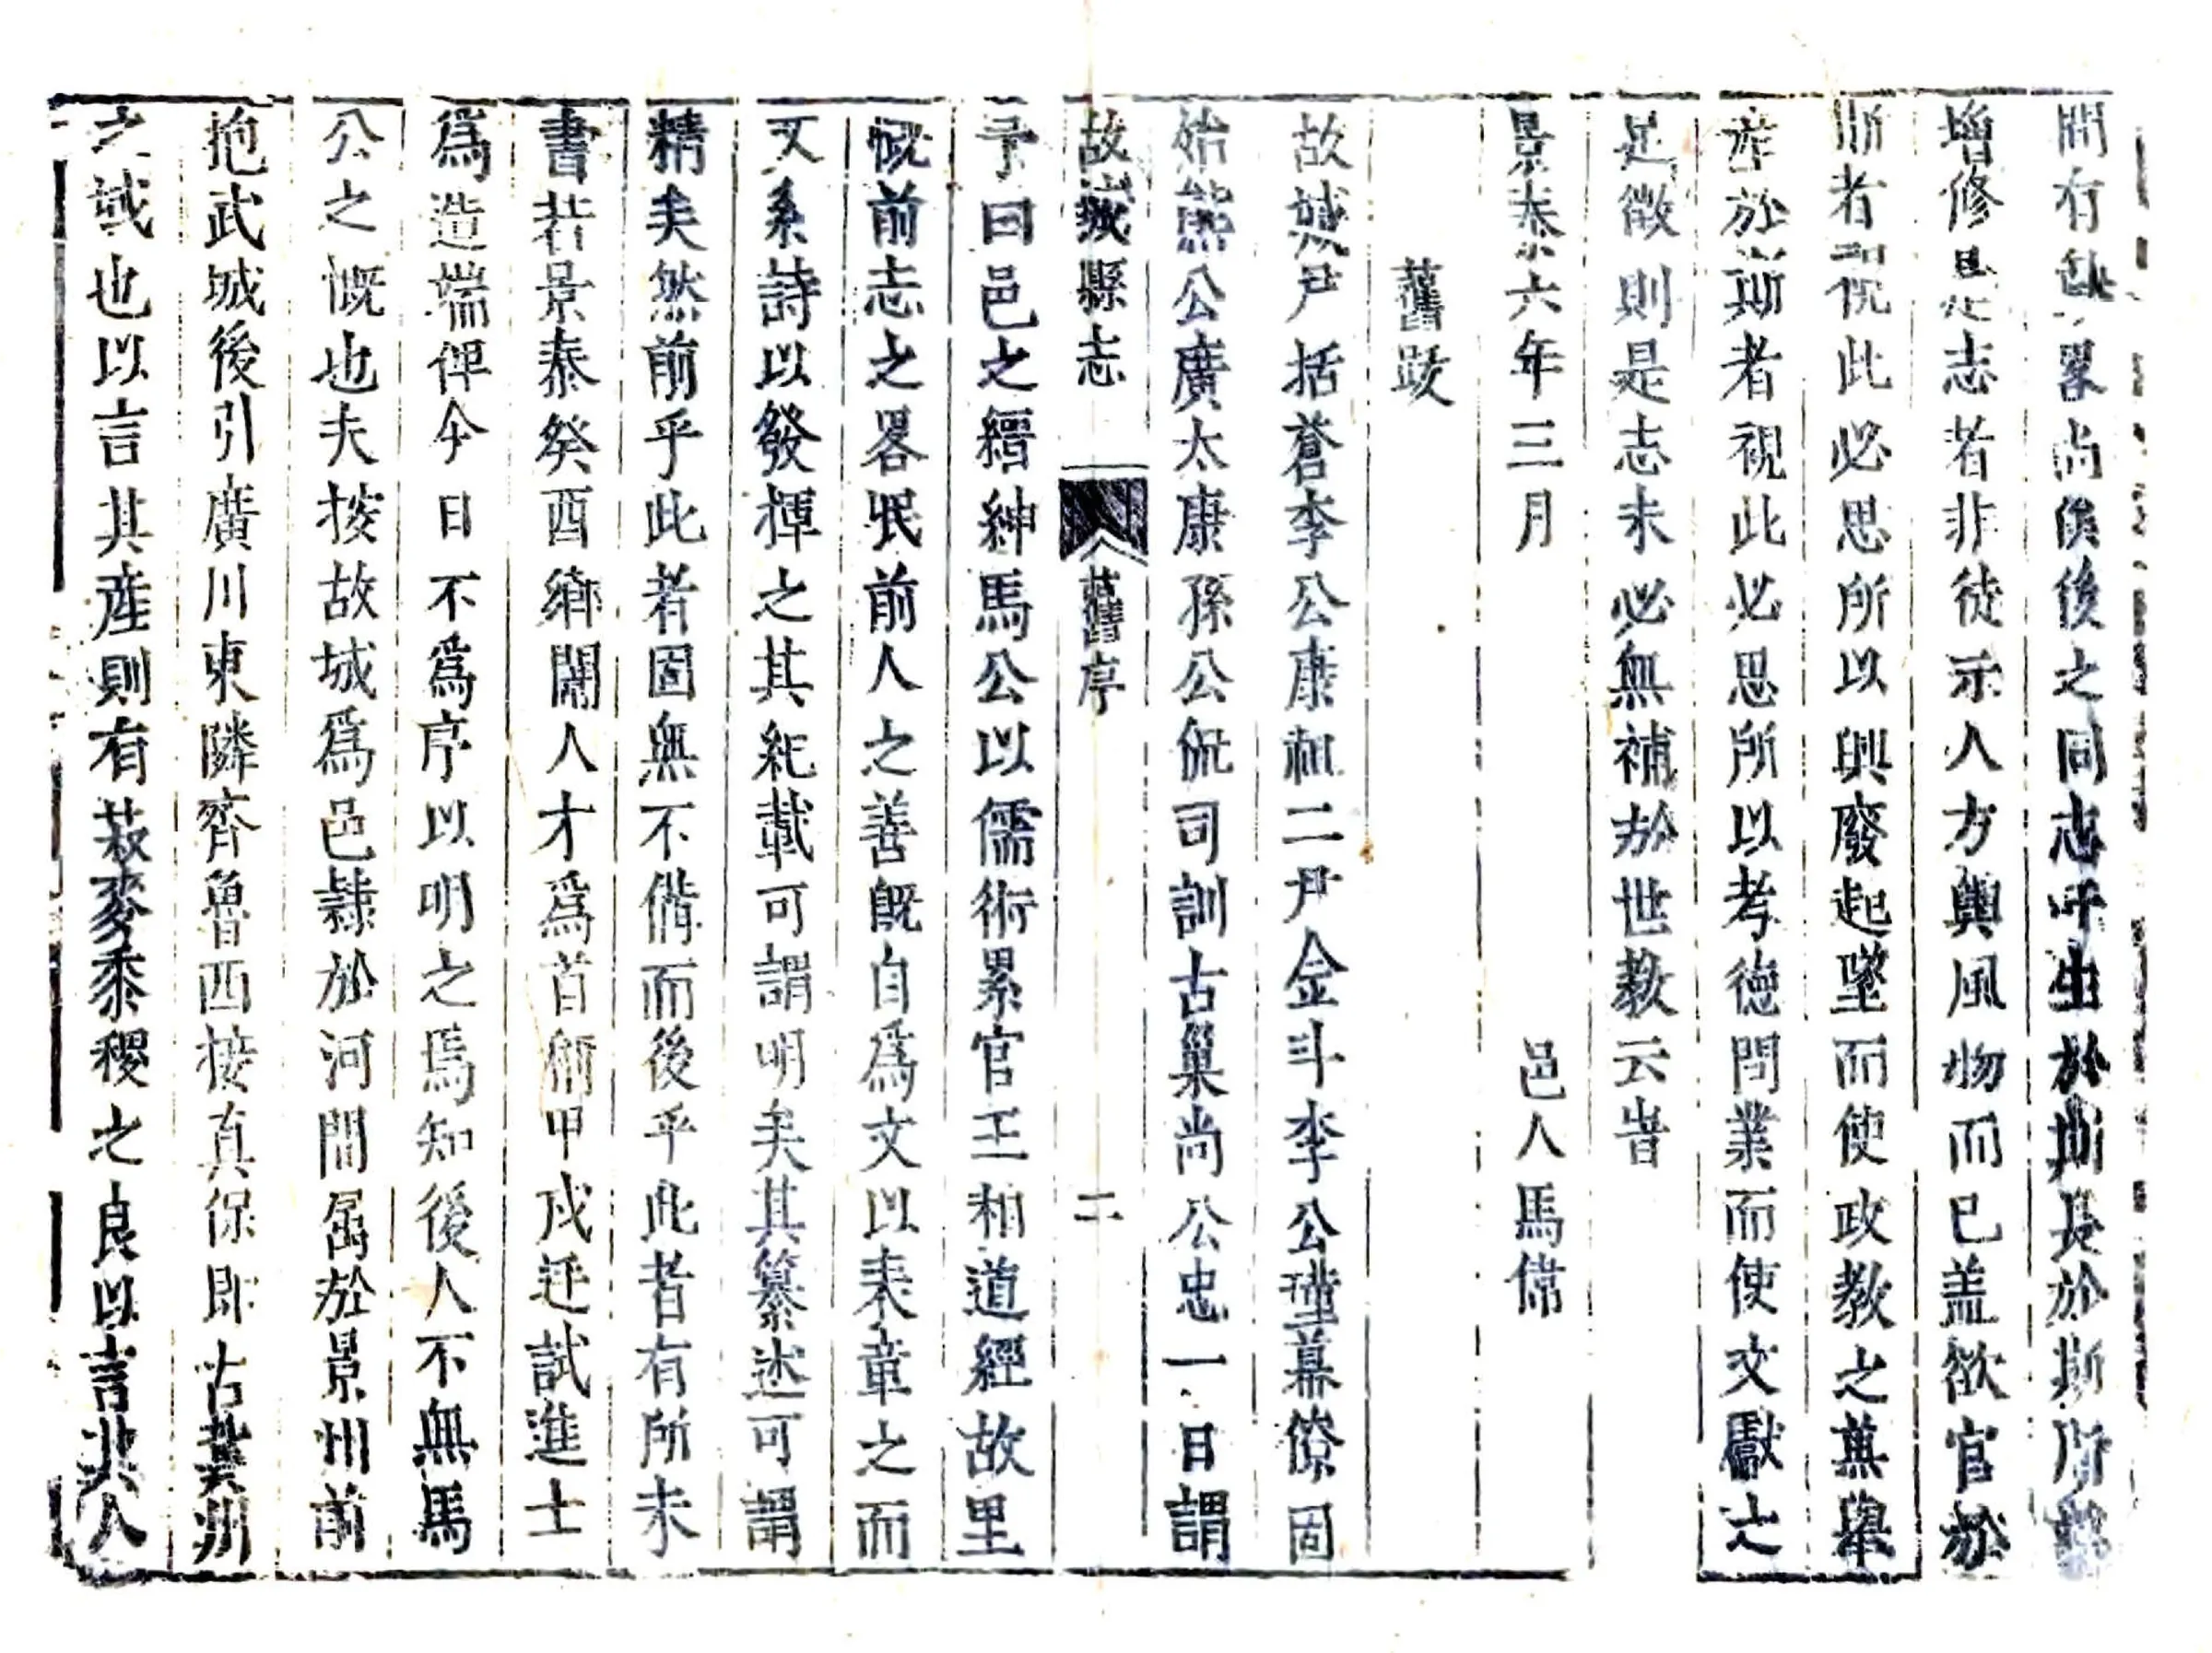 間有缺畧尚俟後之同志吁生於斯長於斯所
增修是志者非徒示人方輿風物而已盖欲官於
斯者視此必思所以興廢起墜而使政教之舉
産於斯者視此必思所以考德問業而使文獻之
足徵則是志未必無補於世教云旹
景泰六年三月 邑人馬偉
舊跋
故城尹括蒼李公康和二尹金斗李公瓊幕僚固
始熊公廣太康孫公侃司訓古巢尚公忠一日謂
故城縣志 舊序 二
予曰邑之縉紳馬公以儒術累官王相道經故里
慨前志之畧泯前人之善旣自爲文以表章之而
又系詩以發揮之其紀載可謂明矣其纂述可謂
精矣然前乎此者固無不備而後乎此者有所未
書若景泰癸酉鄕闈人才爲首徴甲戍廷試進士
爲造端俾今日不爲序以明之焉知後人不無馬
公之慨也夫按故城爲邑隸於河間屬於景州前
抱武城後引廣川東隣齊魯西接真保即古冀州
之域也以言其産則有菽麥黍稷之良以言其人